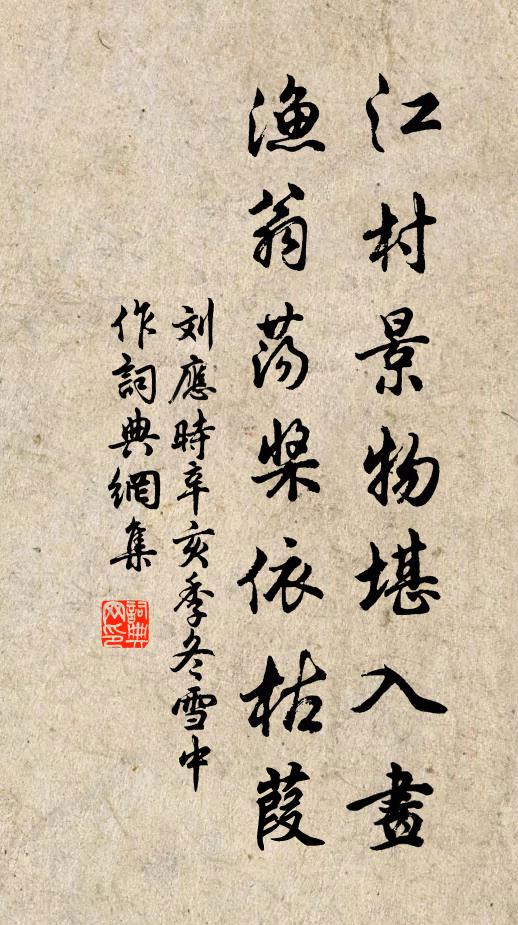 江村景物堪入畫
漁翁荡槳依枯葭
刘應時辛亥季冬雪中
作詞典網集
詞典网印